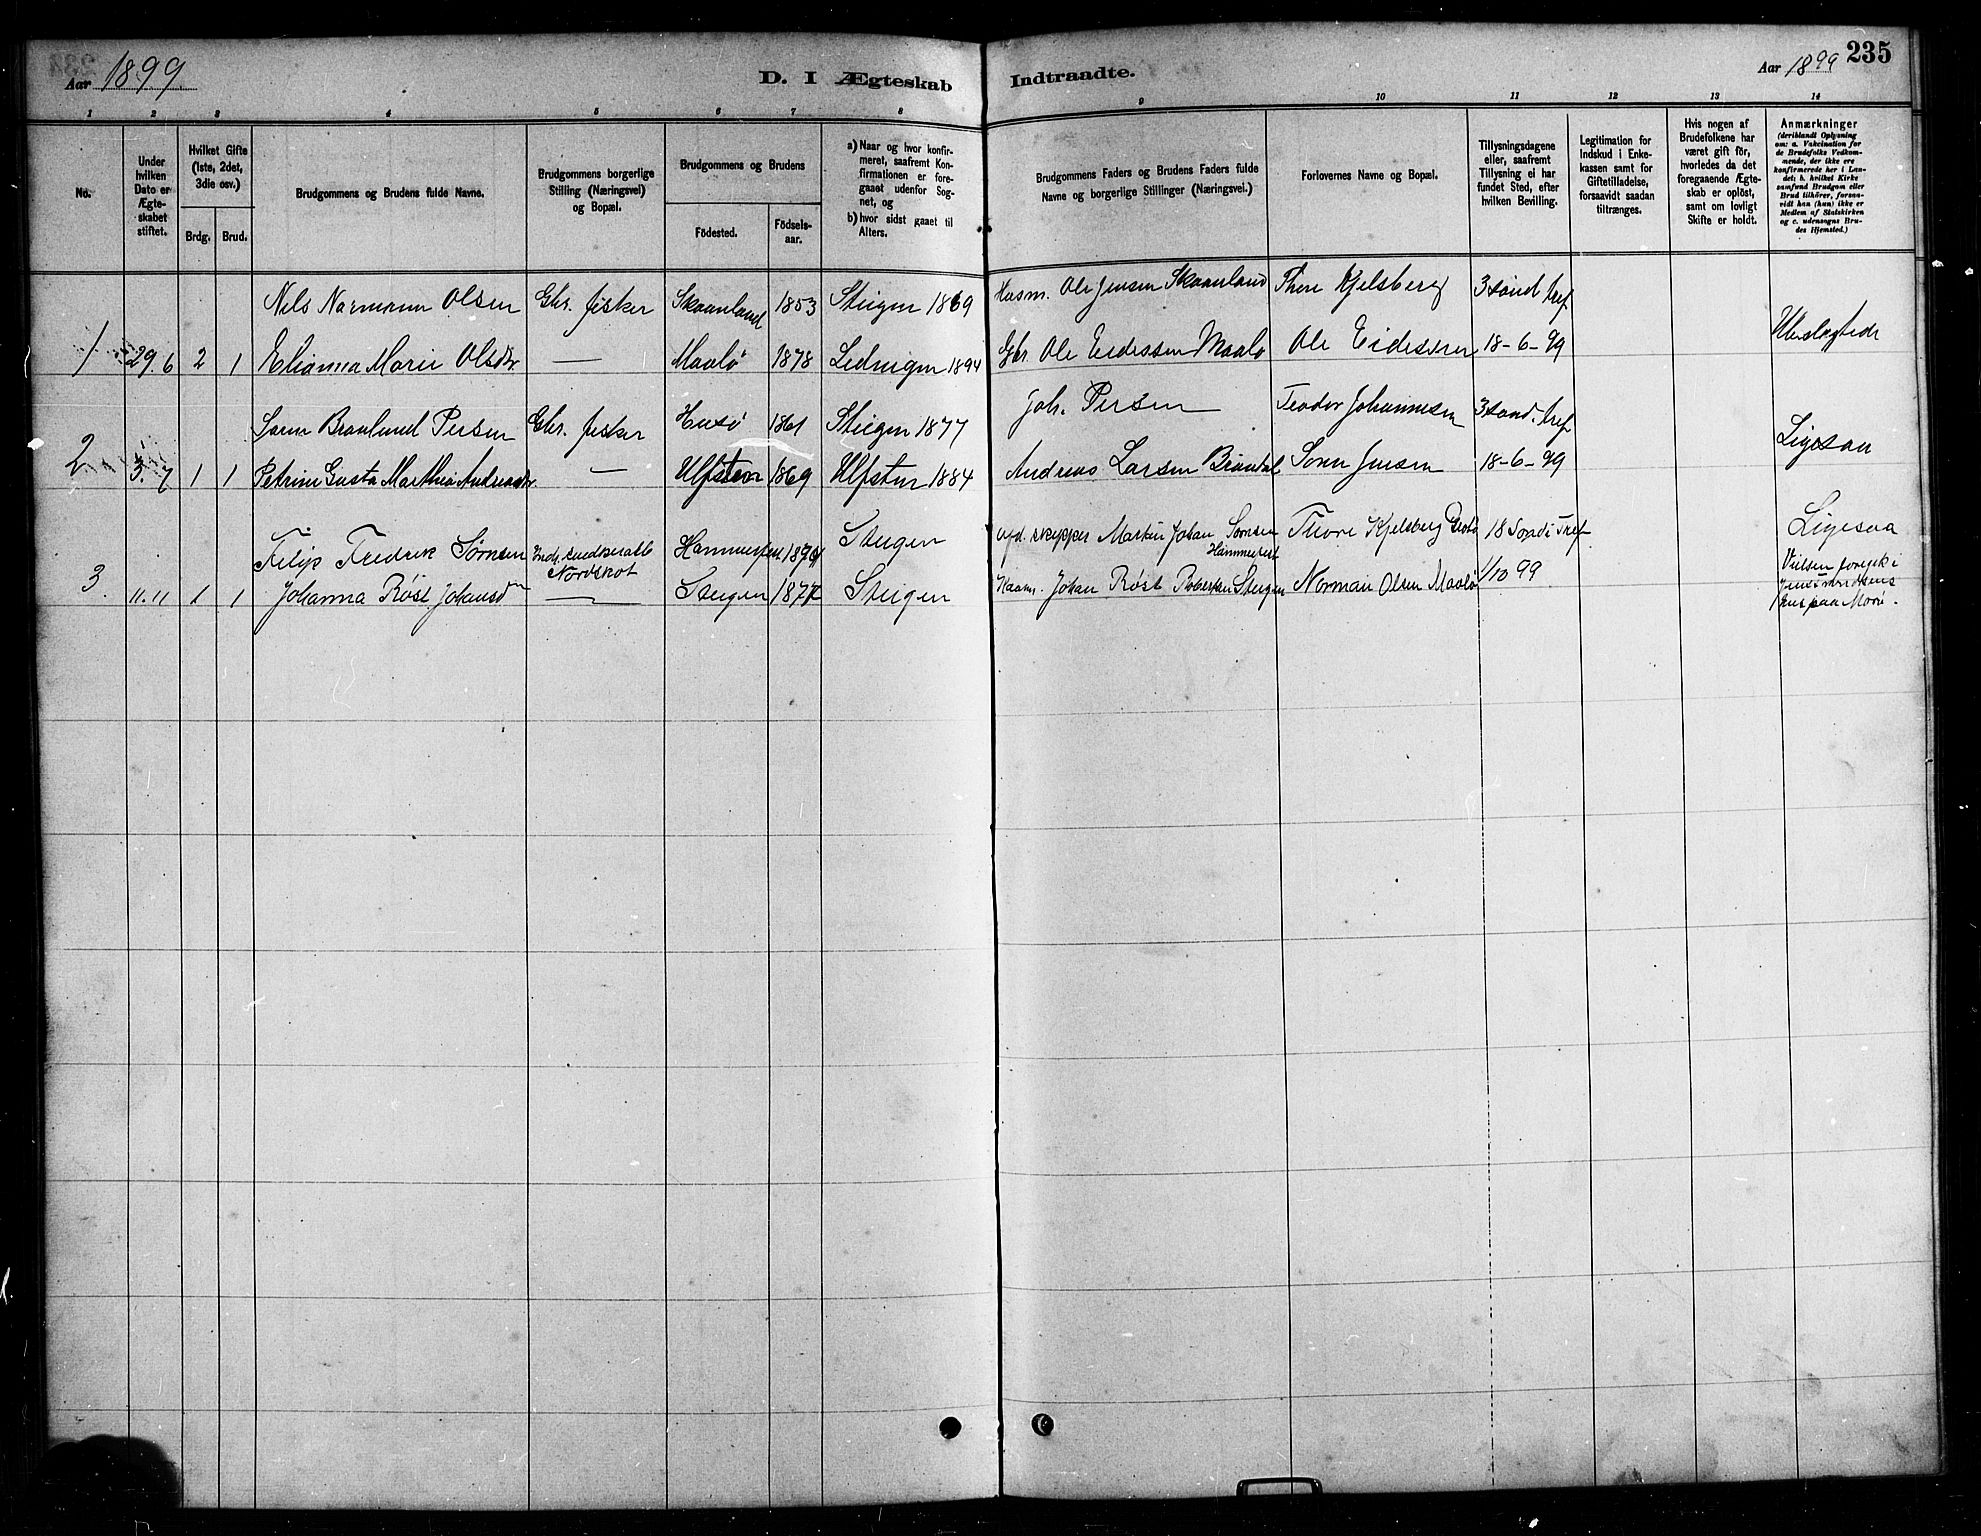 Aar 1899
D. I Ægteskab
Indtraadte.
Aar 1899
235
1 2 3 4 5 6 7 8 9 10 11 12 13 14
No.
Under hvilken Dato er Ægteskabet stiftet.
Hvilket Gifte (1ste, 2det, 3die osv.)
Brdg. Brud.
Brudgommens og Brudens fulde Navne.
Brudgommens borgerlige Stilling (Næringsvei) og Bopæl.
Brudgommens og Brudens
Födested.
Födselsaar.
a) Naar og hvor konfirmeret, saafremt Konfirmationen er foregaaet udenfor Sognet, og
b) hvor sidst gaaet til Alters.
Brudgommens Faders og Brudens Faders fulde Navne og borgerlige Stillinger (Næringsvei.)
Forlovernes Navne og Bopæl.
Tillysningsdagene eller, saafremt Tillysning ei har fundet Sted, efter hvilken Bevilling.
Legitimation for Indskud i Enkekassen samt for Giftetilladelse, forsaavidt saadan tiltrænges.
Hvis nogen af Brudefolkene har været gift för, hvorledes da det foregaaende Ægteskab er oplöst, samt om lovligt Skifte er holdt.
Anmærkninger
(deriblandt Oplysning om: a. Vakcination for de Brudefolks Vedkommende, der ikke ere konfirmerede her i Landet; b. hvilket Kirkesamfund Brudgom eller Brud tilhörer, forsavidt han (hun) ikke er Medlem af Statskirken og c. udensogns Brudes Hjemsted.)
Nils Normann Olsen Gbr. fisker Skaanland 1853 Steigen 1869 Husm. Ole Jensen Skaanland Thore Kjelsberg 3 sönd. tref
1 29.6 2 1 Elianna Marie Olsdr. — Maalö 1878 Lödingen 1894 Gbr. Ole Eidessen Maalö Ole Eidessen 18-6-99
Ubeslægtede
Sörен Braalund Persen Gbr. fisker Husö 1861 Steigen 1877 Joh. Persen Teodor Johannesen 3 sönd. tref
2 3.7 1 1 Petrine Gusta Marthea Andreasdr. — Ulfsten 1869 Ulfsten 1884 Andreas Larsen Sörен Jensen 18-6-99
Ligesaa
Filip Fredrik Sörnsen Nordskot Hammerfest 1874 Steigen skipper Martin Johan Sörnsen Hammerfest Thore Kjelsberg 18 Sond. i Tref
3. 11.11 1 1 Johanna Röst Johansdn — Steigen 1877 Steigen Johan Röst Steigen Norman Olsen Maalö 1/10 99
Ligesaa
Vielsen foregik i
hus paa